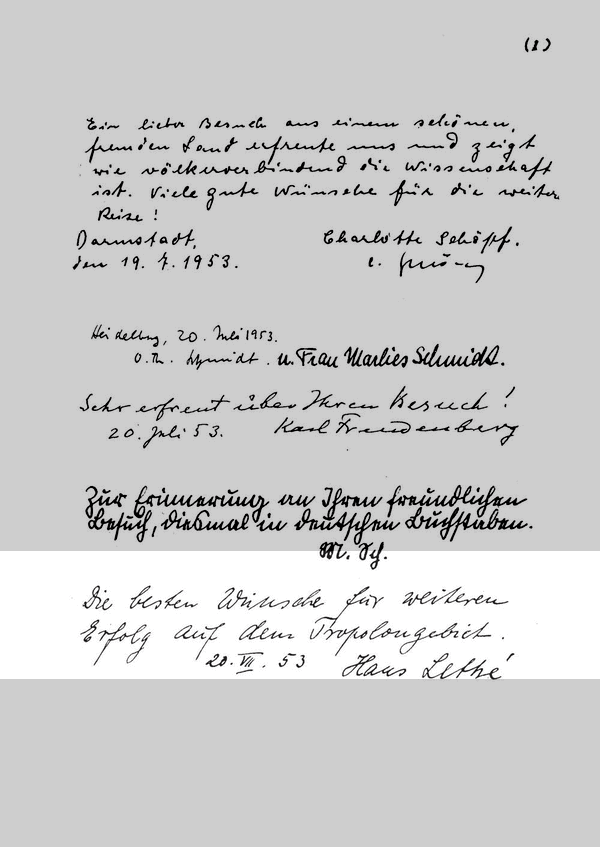 (2)
Ein lieber Besuch aus einem schönen,
fremden Land erfreute uns und zeigt
wie völkerverbindend die Wissenschaft
ist. Viele gute Wünsche für die weitere
Reise!
Darmstadt, Charlotte Schöpf.
den 19. 7. 1953. C. Schöpf
Heidelberg, 20. Juli 1953.
O. Th. Schmidt. u. Frau Marlies Schmidt.
Sehr erfreut über Ihren Besuch!
20. Juli 53. Karl Freudenberg
Zur Erinnerung an Ihren freundlichen
Besuch, diesmal in deutschen Buchstaben.
M. Sch.
Die besten Wünsche für weiteren
Erfolg auf dem Tropolongebiet.
20. VII. 53 Hans Lettré